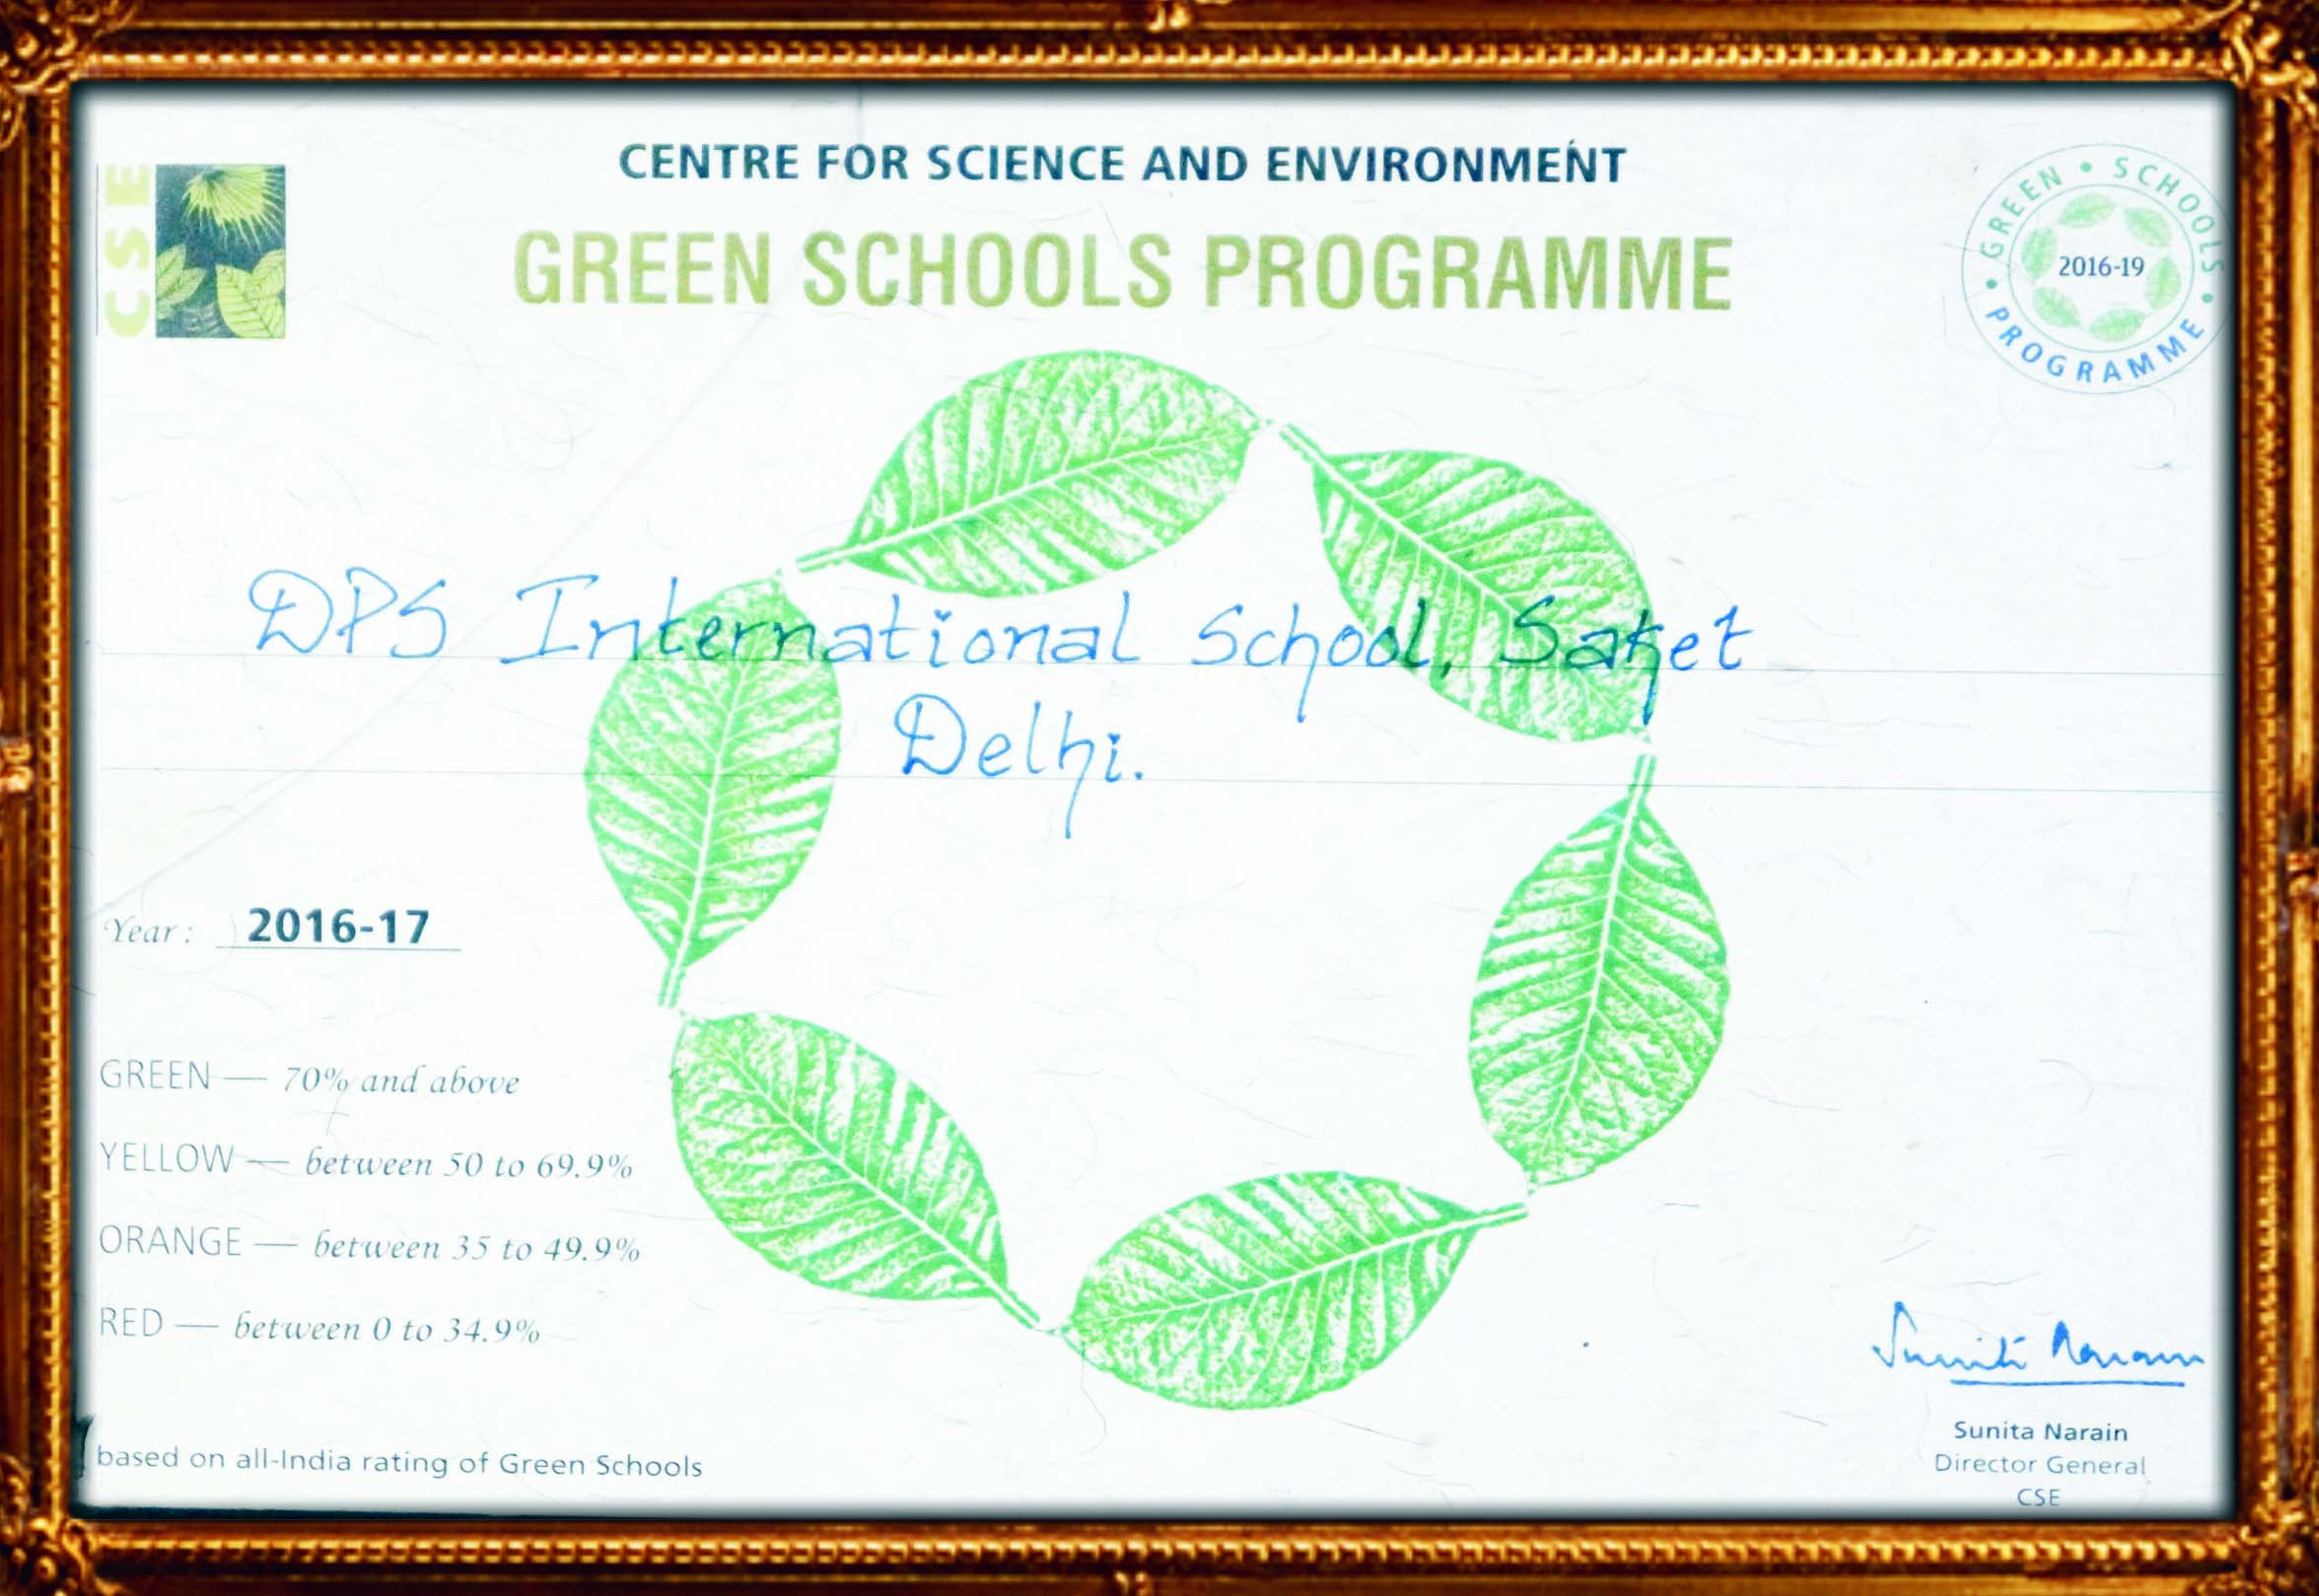 CSE
CENTRE FOR SCIENCE AND ENVIRONMENT
GREEN SCHOOLS PROGRAMME
GREEN • SCHOOLS • PROGRAMME •
2016-19
DPS International School, Saket
Delhi.
Year: 2016-17
GREEN — 70% and above
YELLOW — between 50 to 69.9%
ORANGE — between 35 to 49.9%
RED — between 0 to 34.9%
based on all-India rating of Green Schools
Sunita Narain
Sunita Narain
Director General
CSE